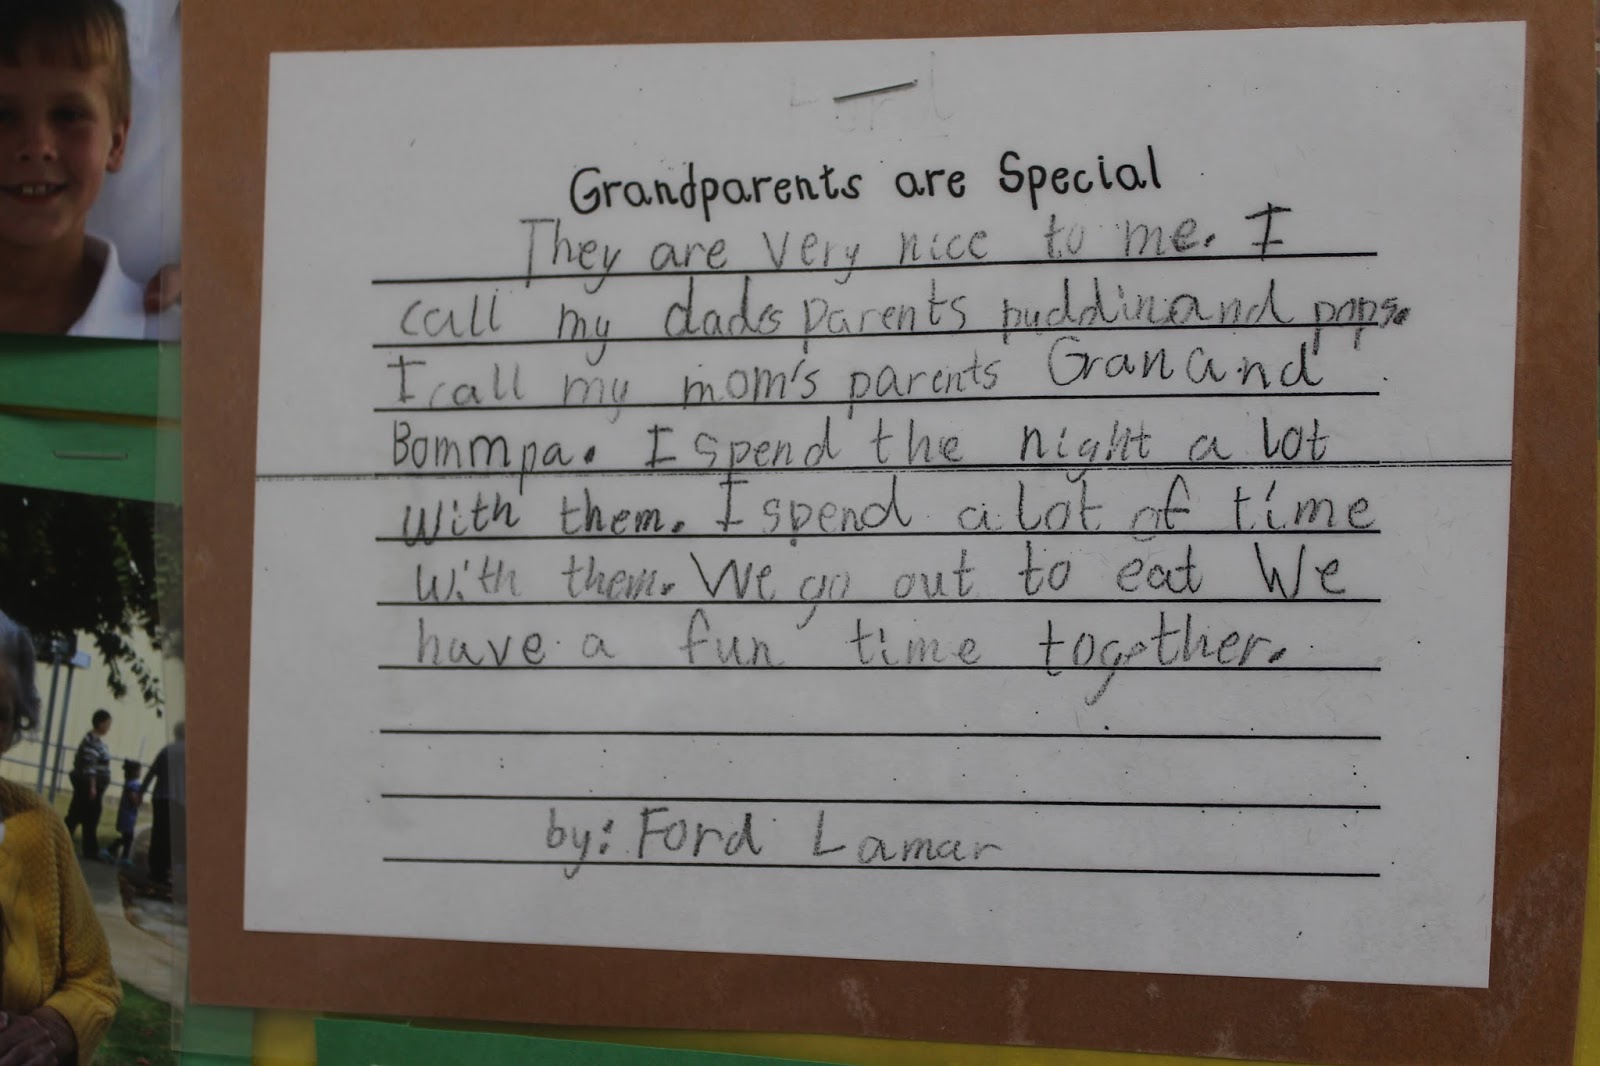 Ford
Grandparents are Special
They are very nice to me. I
call my dads parents puddin and pops.
I call my mom's parents Gran and
Bommpa. I spend the night a lot
with them. I spend a lot of time
with them. We go out to eat We
have a fun time together.
by: Ford Lamar